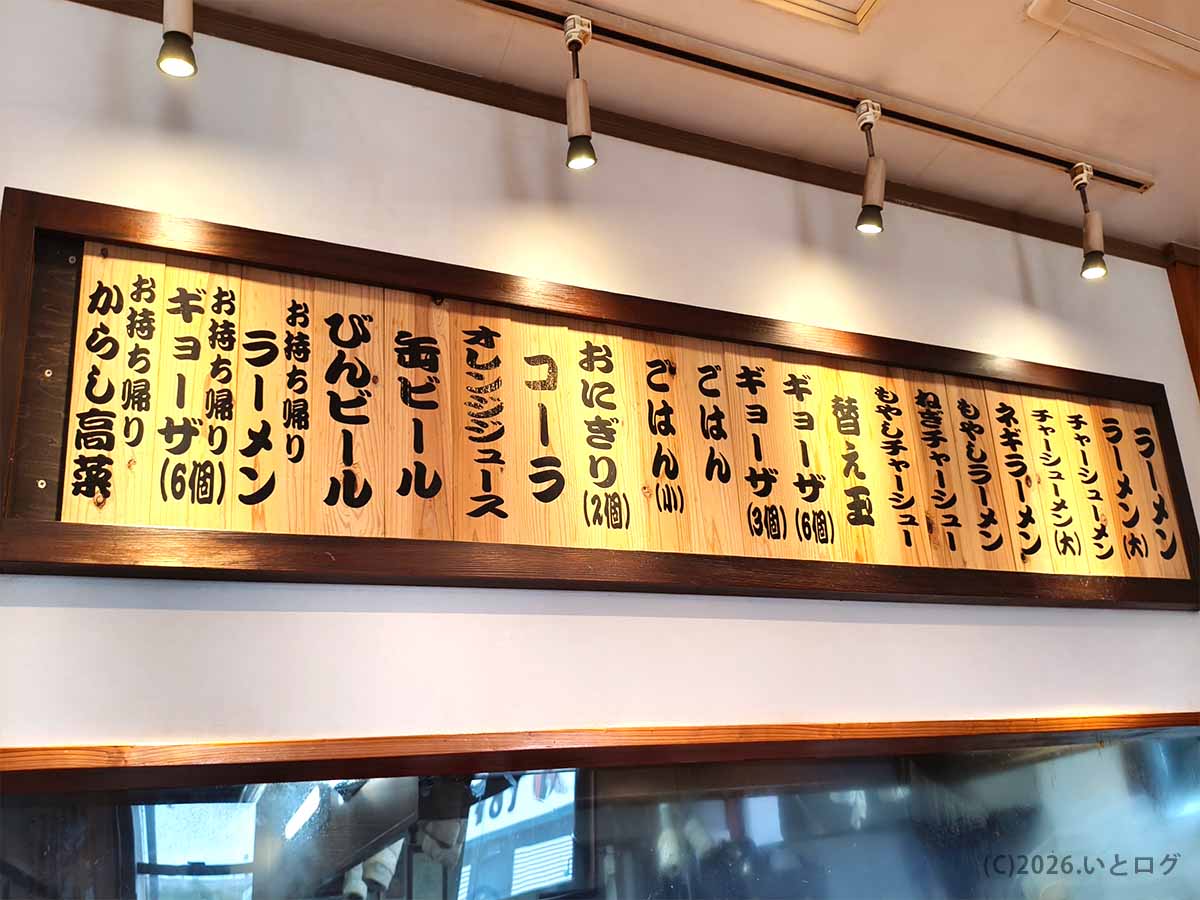 ラーメン
ラーメン(大)
チャーシューメン
チャーシューメン(大)
ネギラーメン
もやしラーメン
ねぎチャーシュー
もやしチャーシュー
替え玉
ギョーザ(6個)
ギョーザ(3個)
ごはん
ごはん(小)
おにぎり(2個)
コーラ
オレンジジュース
缶ビール
びんビール
お持ち帰り
ラーメン
お持ち帰り
ギョーザ(6個)
お持ち帰り
からし高菜
(C)2026.いとログ